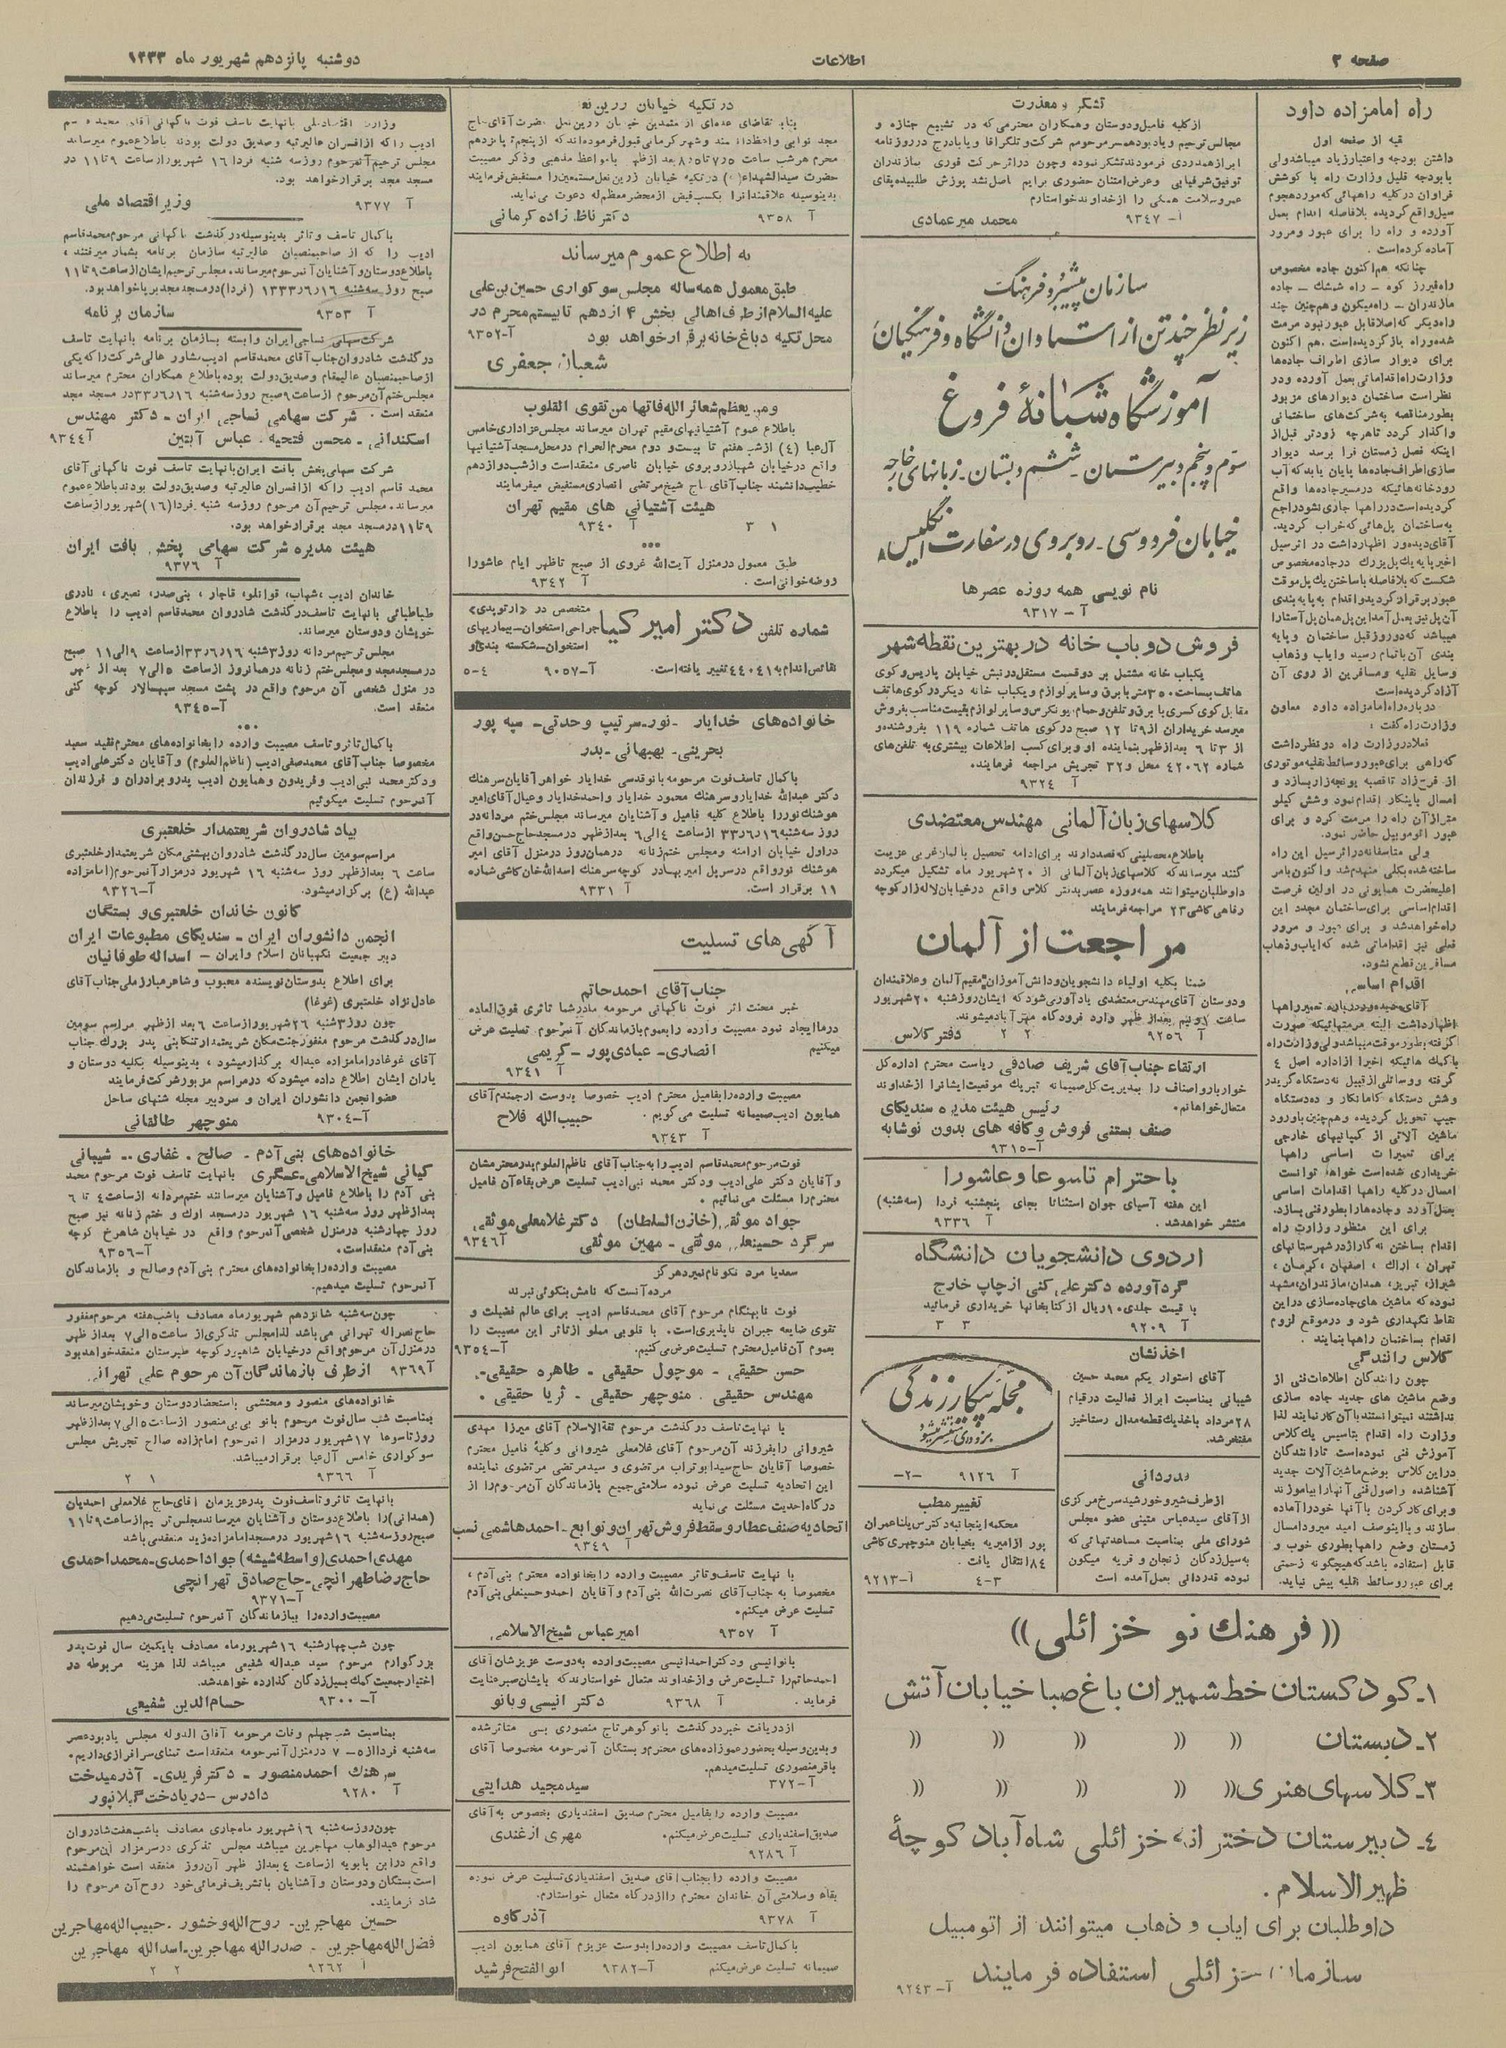 صفحه ۲
اطلاعات
دوشنبه پانزدهم شهریور ماه ۱۳۳۳
راه امامزاده داود
بقیه از صفحه اول
داشتن بودجه و اعتبار زیاد میباشد ولی
با بودجه قلیل وزارت راه با کوشش
فراوان در کلیه راههائی که مورد هجوم
سیل واقع گردیده بلافاصله اقدام بعمل
آورده و راه را برای عبور و مرور
آماده کرده است.
چنانکه هم اکنون جاده مخصوص
راه فیروز کوه - راه شمشک - جاده
مازندران - راه میگون و همچنین چند
راه دیگر که اصلا قابل عبور نبود مرمت
شده و راه باز گردیده است. هم اکنون
برای دیوار سازی اطراف جاده‌ها
وزارت راه اقداماتی بعمل آورده و در
نظر است ساختمان دیوارهای مزبور
بطور مناقصه به شرکت‌های ساختمانی
واگذار گردد تا هر چه زودتر قبل از
اینکه فصل زمستان فرا برسد دیوار
سازی اطراف جاده‌ها پایان یابد که آب
رودخانه هائیکه در مسیر جاده‌ها واقع
گردیده است در راهها جاری نشود راجع
به ساختمان پل‌هائی که خراب گردید.
درباره راه امامزاده داود معاون
وزارت راه گفت:
فعلا در وزارت راه در نظر داشت
که راهی برای عبور وسائط نقلیه موتوری
از فرح‌زاد تا قصبه یونجه زار بسازد و
امسال باینکار اقدام نمود و شش کیلو
متر از آن راه را مرمت کرد و برای
عبور اتوموبیل حاضر نمود.
ولی متاسفانه در اثر سیل این راه
ساخته شده بکلی منهدم شد و اکنون بامر
اعلیحضرت همایونی در اولین فرصت
اقدام اساسی برای ساختمان مجدد این
راه خواهد شد و برای عبور و مرور
فعلی نیز اقداماتی شده که ایاب و ذهاب
مسافرین قطع نشود.
اقدام اساسی
برای این منظور وزارت راه
اقدام بساختن نه گاراژ در شهرستانهای
تهران، اراک، اصفهان، کرمان،
شیراز، تبریز، همدان، مازندران، مشهد
نموده که ماشین های جاده سازی در این
نقاط نگهداری شود و در موقع لزوم
اقدام بساختمان راهها بنمایند.
کلاس رانندگی
چون رانندگان اطلاعات فنی از
وضع ماشین های جدید جاده سازی
نداشتند نمیتوانستند با آن کار نمایند لذا
وزارت راه اقدام بتاسیس یک کلاس
آموزش فنی نموده است تا رانندگان
در این کلاس بوضع ماشین آلات جدید
آشنا شده و اصول فنی آنها را بیاموزند
و برای کار کردن با آنها خود را آماده
سازند و با اینوصف امید میرود امسال
زمستان وضع راهها بطوری خوب و
قابل استفاده باشد که هیچگونه زحمتی
برای عبور وسائط نقلیه پیش نیاید.
تشکر و معذرت
از کلیه فامیل و دوستان و همکاران محترمی که در تشییع جنازه و
محمد میرعمادی
آ- ۹۳۴۷
سازمان پیشرو فرهنگ
زیر نظر چند تن از استادان دانشگاه و فرهنگیان
آموزشگاه شبانهٔ فروغ
سوم و پنجم دبیرستان - ششم دبستان - زبانهای خارجه
خیابان فردوسی - روبروی در سفارت انگلیس
نام نویسی همه روزه عصرها
آ- ۹۳۱۷
فروش دو باب خانه در بهترین نقطه شهر
یکباب خانه مشتمل بر دو قسمت مستقل در نبش خیابان پاریس و کوی
هاتف بمساحت ۳۵۰ متر با برق و سایر لوازم و یکباب خانه دیگر در کوی هاتف
مقابل کوی کسری با برق و تلفن و حمام، یونکرس و سایر لوازم بقیمت مناسب بفروش
میرسد خریداران از ۹ تا ۱۲ صبح در کوی هاتف شماره ۱۱۹ بفروشنده و
از ۳ تا ۶ بعد از ظهر بنماینده او و برای کسب اطلاعات بیشتری به تلفن‌های
شماره ۴۲۰۶۲ محل و ۳۲ تجریش مراجعه فرمایند.
آ ۹۳۲۴
کلاسهای زبان آلمانی مهندس معتضدی
باطلاع محصلینی که قصد دارند برای ادامه تحصیل بآلمان غربی عزیمت
گنند میرساند که کلاسهای زبان آلمانی از ۲۰ شهریور ماه تشکیل میگردد
داوطلبان میتوانند همه روزه عصر بدفتر کلاس واقع در خیابان لاله‌زار کوچه
رفاهی کاشی ۲۳ مراجعه فرمایند
مراجعت از آلمان
ضمنا بکلیه اولیاء دانشجویان و دانش آموزان مقیم آلمان و علاقمندان
و دوستان آقای مهندس معتضدی یادآوری میشود که ایشان روز شنبه ۲۰ شهریور
دفتر کلاس
۲ ۲
آ ۹۲۵۶
ارتقاء جناب آقای شریف صادقی ریاست محترم اداره کل
خواربار و اصناف را بمدیریت کل صمیمانه تبریک موفقیت ایشانرا از خداوند
متعال خواهانم.
رئیس هیئت مدیره سندیکای
صنف بستنی فروش و کافه های بدون نوشابه
آ- ۹۳۱۵
با احترام تاسوعا و عاشورا
این هفته آسیای جوان استثنائا بجای پنجشنبه فردا (سه‌شنبه)
منتشر خواهد شد.
آ ۹۳۳۶
اردوی دانشجویان دانشگاه
گردآورده دکتر علی کنی از چاپ خارج
با قیمت جلدی ۱۰ ریال از کتابخانها خریداری فرمائید
آ ۹۲۰۹
۳ ۳
اخذ نشان
آقای استوار یکم محمد حسین
شیبانی بمناسبت ابراز فعالیت در قیام
۲۸ مرداد باخذ یک قطعه مدال رستاخیز
مفتخر شد.
قدردانی
از طرف شیر و خورشید سرخ مرکزی
از آقای سید عباس متینی عضو مجلس
شورای ملی بمناسبت مساعدتهائی که
به سیل‌زدگان زنجان و قریه میگون
نموده قدردانی بعمل آمده است
مجله پیکار زندگی
بزودی منتشر میشود
آ ۹۱۲۶ -۲-
تغییر مطب
پور از امیریه بخیابان منوچهری کاشی
۸۴ انتقال یافت.
۳-۴
آ- ۹۲۱۳
((فرهنگ نو خزائلی))
۱- کودکستان خط شمیران باغ صبا خیابان آتش
۲- دبستان (( (( (( (( ((
۳- کلاسهای هنری (( (( (( (( ((
۴- دبیرستان دخترانه خزائلی شاه آباد کوچهٔ
ظهیرالاسلام.
داوطلبان برای ایاب و ذهاب میتوانند از اتومبیل
سازمان خزائلی استفاده فرمایند
آ- ۹۲۴۳
در تکیه خیابان زرین نعل
دکتر ناظرزاده کرمانی
آ ۹۳۵۸
به اطلاع عموم میرساند
طبق معمول همه ساله مجلس سوگواری حسین بن علی
علیه السلام از طرف اهالی بخش ۴ از دهم تا بیستم محرم در
محل تکیه دباغ خانه برقرار خواهد بود
آ- ۹۳۵۲
شعبان جعفری
ومن یعظم شعائر الله فانها من تقوی القلوب
باطلاع عموم آشتیانیهای مقیم تهران میرساند مجلس عزاداری خامس
آل عبا (ع) از شب هفتم تا بیست و دوم محرم الحرام در محل مسجد آشتیانیها
واقع در خیابان شهباز روبروی خیابان ناصری منعقد است و از شب دوازدهم
خطیب دانشمند جناب آقای حاج شیخ مرتضی انصاری مستفیض میفرمایند
هیئت آشتیانی های مقیم تهران
آ ۹۳۴۰
۱ ۳
طبق معمول در منزل آیت‌الله غروی از صبح تا ظهر ایام عاشورا
روضه خوانی است.
آ ۹۳۴۲
شماره تلفن دکتر امیرکیا
متخصص در «ارتوپدی»
جراحی استخوان - بیماریهای
استخوان - شکسته بندی و
نقائص اندام به ۴۴۰۴۱ تغییر یافته است.
آ- ۹۰۵۷
۴-۵
خانواده‌های خدایار - نور - سرتیپ وحدتی - سپه پور
بحرینی - بهبهانی - بدر
باکمال تاسف فوت مرحومه بانو قدسی خدایار خواهر آقایان سرهنگ
دکتر عبدالله خدایار و سرهنگ محمود خدایار و احمد خدایار و عیال آقای امیر
هوشنگ نور را باطلاع کلیه فامیل و آشنایان میرساند مجلس ختم مردانه در
روز سه‌شنبه ۳۳/۶/۱۶ از ساعت ۴ الی ۶ بعد از ظهر در مسجد حاج حسن واقع
در اول خیابان ارامنه و مجلس ختم زنانه در همان روز در منزل آقای امیر
هوشنگ نور واقع در سرپل امیر بهادر کوچه سرهنگ اسدالله خان کاشی شماره
۱۱ برقرار است.
آ ۹۳۳۱
آگهی های تسلیت
جناب آقای احمد حاتم
خبر محنت اثر فوت ناگهانی مرحومه مادر شما تاثری فوق العاده
در ما ایجاد نمود مصیبت وارده را بعموم بازماندگان آنمرحوم تسلیت عرض
میکنیم
انصاری - عبادی پور - کریمی
آ ۹۳۴۱
مصیبت وارده را بفامیل محترم ادیب خصوصا بدوست ارجمندم آقای
همایون ادیب صمیمانه تسلیت می‌گویم.
حبیب‌الله فلاح
آ ۹۳۴۳
فوت مرحوم محمد قاسم ادیب را به جناب آقای ناظم العلوم پدر محترمشان
و آقایان دکتر علی ادیب و دکتر محمد نبی ادیب تسلیت عرض بقاء آن فامیل
محترم را مسئلت می‌نمائیم.
جواد موثقی (خازن السلطان) دکتر غلامعلی موثقی
سرگرد حسینعلی موثقی - مهین موثقی
آ ۹۳۴۶
سعدیا مرد نکو نام نمیرد هرگز
مرده آنست که نامش بنکوئی نبرند
فوت نابهنگام مرحوم آقای محمد قاسم ادیب برای عالم فضیلت و
تقوی ضایعه جبران ناپذیری است. با قلوبی مملو از تاثر این مصیبت را
بعموم آن فامیل محترم تسلیت عرض می‌کنیم.
آ- ۹۳۵۴
حسن حقیقی - موچول حقیقی - طاهره حقیقی -
مهندس حقیقی. منوچهر حقیقی - ثریا حقیقی.
با نهایت تاسف در گذشت مرحوم ثقةالاسلام آقای میرزا مهدی
شیروانی را بفرزند آن مرحوم آقای غلامعلی شیروانی و کلیهٔ فامیل محترم
خصوصا آقایان حاج سید ابوتراب مرتضوی و سید مرتضی مرتضوی نماینده
این اتحادیه تسلیت عرض نموده سلامتی جمیع بازماندگان آن مرحوم را از
درگاه احدیت مسئلت می‌نماید
اتحادیه صنف عطار و سقط فروش تهران و توابع - احمد هاشمی نسب
آ ۹۳۴۹
با نهایت تاسف و تاثر مصیبت وارده را بخانواده محترم بنی‌آدم،
مخصوصا به جناب آقای نصرت‌الله بنی‌آدم و آقایان احمد و حسینعلی بنی‌آدم
تسلیت عرض میکنم.
آ ۹۳۵۷
امیرعباس شیخ‌الاسلامی
بانو انیسی و دکتر احمد انیسی مصیبت وارده به دوست عزیزشان آقای
احمد حاتم را تسلیت عرض و از خداوند متعال خواستارند که بایشان صبر عنایت
فرماید.
آ ۹۳۶۸
دکتر انیسی و بانو
از دریافت خبر درگذشت بانو گوهرتاج منصوری بسی متاثر شده
و بدین وسیله بحضور عموزاده‌های محترم و بستگان آنمرحومه مخصوصا آقای
باقر منصوری تسلیت میدهم.
آ- ۳۷۲
سید مجید هدایتی
مصیبت وارده را بفامیل محترم صدیق اسفندیاری بخصوص به آقای
صدیق اسفندیاری تسلیت عرض میکنم.
مهری ازغندی
آ ۹۲۸۶
مصیبت وارده را بجناب آقای صدیق اسفندیاری تسلیت عرض نموده
بقاء و سلامتی آن خاندان محترم را از درگاه متعال خواستارم.
آ ۹۳۷۸
آذر کاوه
باکمال تاسف مصیبت وارده را بدوست عزیزم آقای همایون ادیب
صمیمانه تسلیت عرض میکنم
آ- ۹۳۸۲
ابوالفتح فرشید
وزارت اقتصاد ملی با نهایت تاسف فوت ناگهانی آقای محمد قاسم
ادیب را که از افسران عالیرتبه و صدیق دولت بودند باطلاع عموم میرساند
مجلس ترحیم آنمرحوم روز سه شنبه فردا ۱۶ شهریور از ساعت ۹ تا ۱۱ در
مسجد مجد برقرار خواهد بود.
آ ۹۳۷۷
وزیر اقتصاد ملی
باکمال تاسف و تاثر بدینوسیله درگذشت ناگهانی مرحوم محمد قاسم
ادیب را که از صاحبمنصبان عالیرتبه سازمان برنامه بشمار میرفتند،
باطلاع دوستان و آشنایان آنمرحوم میرساند، مجلس ترحیم ایشان از ساعت ۹ تا ۱۱
صبح روز سه‌شنبه ۱۳۳۳/۶/۱۶ (فردا) در مسجد مجد برپا خواهد بود.
آ ۹۳۵۳
سازمان برنامه
شرکت سهامی نساجی ایران وابسته بسازمان برنامه با نهایت تاسف
درگذشت شادروان جناب آقای محمد قاسم ادیب مشاور عالی شرکت را که یکی
از صاحبمنصبان عالیمقام و صدیق دولت بوده باطلاع همکاران محترم میرساند
مجلس ختم آن مرحوم از ساعت ۹ صبح روز سه شنبه ۳۳/۶/۱۶ در مسجد مجد
منعقد است.
شرکت سهامی نساجی ایران - دکتر مهندس
اسکندانی - محسن فتحیه. عباس آبتین
آ ۹۳۴۴
شرکت سهامی پخش بافت ایران با نهایت تاسف فوت ناگهانی آقای
محمد قاسم ادیب را که از افسران عالیرتبه و صدیق دولت بودند باطلاع عموم
میرساند، مجلس ترحیم آن مرحوم روز سه شنبه فردا (۱۶) شهریور از ساعت
۹ تا ۱۱ در مسجد مجد برقرار خواهد بود.
هیئت مدیره شرکت سهامی پخش بافت ایران
آ ۹۳۷۶
خاندان ادیب، شهاب، قوانلو، قاجار، بنی صدر، نصیری، نادری
طباطبائی با نهایت تاسف در گذشت شادروان محمد قاسم ادیب را باطلاع
خویشان و دوستان میرساند.
مجلس ترحیم مردانه روز ۳شنبه ۳۳/۶/۱۶ از ساعت ۹ الی ۱۱ صبح
در مسجد مجد و مجلس ختم زنانه در همانروز از ساعت ۵ الی ۷ بعد از ظهر
در منزل شخصی آن مرحوم واقع در پشت مسجد سپهسالار کوچه کنی
منعقد است.
آ- ۹۳۴۵
باکمال تاثر و تاسف مصیبت وارده را بخانواده‌های محترم فقید سعید
مخصوصا جناب آقای محمد صفی ادیب (ناظم العلوم) و آقایان دکتر علی ادیب
و دکتر محمد نبی ادیب و فریدون و همایون ادیب پدر و برادران و فرزندان
آنمرحوم تسلیت میگوئیم
بیاد شادروان شریعتمدار خلعتبری
مراسم سومین سال درگذشت شادروان بهشتی مکان شریعتمدار خلعتبری
ساعت ۶ بعد از ظهر روز سه شنبه ۱۶ شهریور در مزار آنمرحوم (امامزاده
عبدالله (ع) برگزار میشود.
آ- ۹۳۲۶
کانون خاندان خلعتبری و بستگان
انجمن دانشوران ایران - سندیکای مطبوعات ایران
دبیر جمعیت نگهبانان اسلام و ایران - اسداله طوفانیان
برای اطلاع بدوستان نویسنده محبوب و شاعر مبارز ملی جناب آقای
عادل‌نژاد خلعتبری (غوغا)
سال درگذشت مرحوم مغفور جنت مکان شریعتمدار تنکابنی پدر بزرگ جناب
آقای غوغا در امامزاده عبداله برگذار میشود، بدینوسیله بکلیه دوستان و
یاران ایشان اطلاع داده میشود که در مراسم مزبور شرکت فرمایند
عضو انجمن دانشوران ایران و سردبیر مجله شنهای ساحل
آ- ۹۳۰۴
منوچهر طالقانی
خانواده‌های بنی‌آدم - صالح - غفاری - شیبانی
کیانی شیخ‌الاسلامی - عسگری با نهایت تاسف فوت مرحوم محمد
بنی آدم را باطلاع فامیل و آشنایان میرسانند ختم مردانه از ساعت ۴ تا ۶
بعد از ظهر روز سه‌شنبه ۱۶ شهریور در مسجد ارک و ختم زنانه نیز صبح
روز چهارشنبه در منزل شخصی آنمرحوم واقع در خیابان شاهرخ کوچه
بنی آدم منعقد است.
آ- ۹۳۵۶
مصیبت وارده را بخانواده‌های محترم بنی‌آدم و صالح و بازماندگان
آنمرحوم تسلیت میدهیم.
چون سه‌شنبه شانزدهم شهریور ماه مصادف با شب هفته مرحوم مغفور
حاج نصراله تهرانی می‌باشد لذا مجلس تذکری از ساعت ۵ الی ۷ بعد از ظهر
در منزل آن مرحوم واقع در خیابان شاهپور کوچه طبرستان منعقد خواهد بود
آ ۹۳۶۹
از طرف بازماندگان آن مرحوم علی تهرانی
خانواده‌های منصور و محتشمی باستحضار دوستان و خویشان میرساند
بمناسبت شب سال فوت مرحوم بانو بی‌بی منصور از ساعت ۵ الی ۷ بعد از ظهر
روز تاسوعا ۱۷ شهریور در مزار آنمرحوم امامزاده صالح تجریش مجلس
سوگواری خامس آل‌عبا برقرار میباشد.
آ ۹۳۶۶
۱ ۲
با نهایت تاثر و تاسف فوت پدر عزیزمان آقای حاج غلامعلی احمدیان
(همدانی) را باطلاع دوستان و آشنایان میرساند مجلس ترحیم از ساعت ۹ تا ۱۱
صبح روز سه‌شنبه ۱۶ شهریور در مسجد امامزاده زید منعقد می باشد
مهدی احمدی (واسطه شیشه) جواد احمدی - محمد احمدی
حاج رضا طهرانچی - حاج صادق تهرانچی
آ- ۹۳۷۱
مصیبت وارده را ببازماندگان آنمرحوم تسلیت می‌دهیم
چون شب چهارشنبه ۱۶ شهریور ماه مصادف با یکمین سال فوت پدر
بزرگوارم مرحوم سید عبداله شفیعی میباشد لذا هزینه مربوطه در
اختیار جمعیت کمک بسیل زدگان گذارده خواهد شد.
آ- ۹۳۰۰
حسام‌الدین شفیعی
بمناسبت شب چهلم وفات مرحومه آفاق الدوله مجلس یادبود عصر
سه‌شنبه فردا از ۵ - ۷ در منزل آنمرحومه منعقد است تمنای سرافرازی داریم.
سرهنگ احمد منصور - دکتر فریدی - آذرمیدخت
آ ۹۲۸۰
دادرس - دریادخت گیلانپور
چون روز سه‌شنبه ۱۶ شهریور ماه جاری مصادف با شب هفت شادروان
مرحوم عبدالوهاب مهاجرین میباشد مجلس تذکری در سر مزار این مرحوم
واقع در ابن بابویه از ساعت ۴ بعد از ظهر آن روز منعقد است خواهشمند
است بستگان و دوستان و آشنایان با تشریف فرمائی خود روح آن مرحوم را
شاد فرمایند.
حسین مهاجرین - روح‌الله وخشور - حبیب‌الله مهاجرین
فضل‌الله مهاجرین - صدرالله مهاجرین - اسدالله مهاجرین
آ ۹۲۶۲
۲ ۲